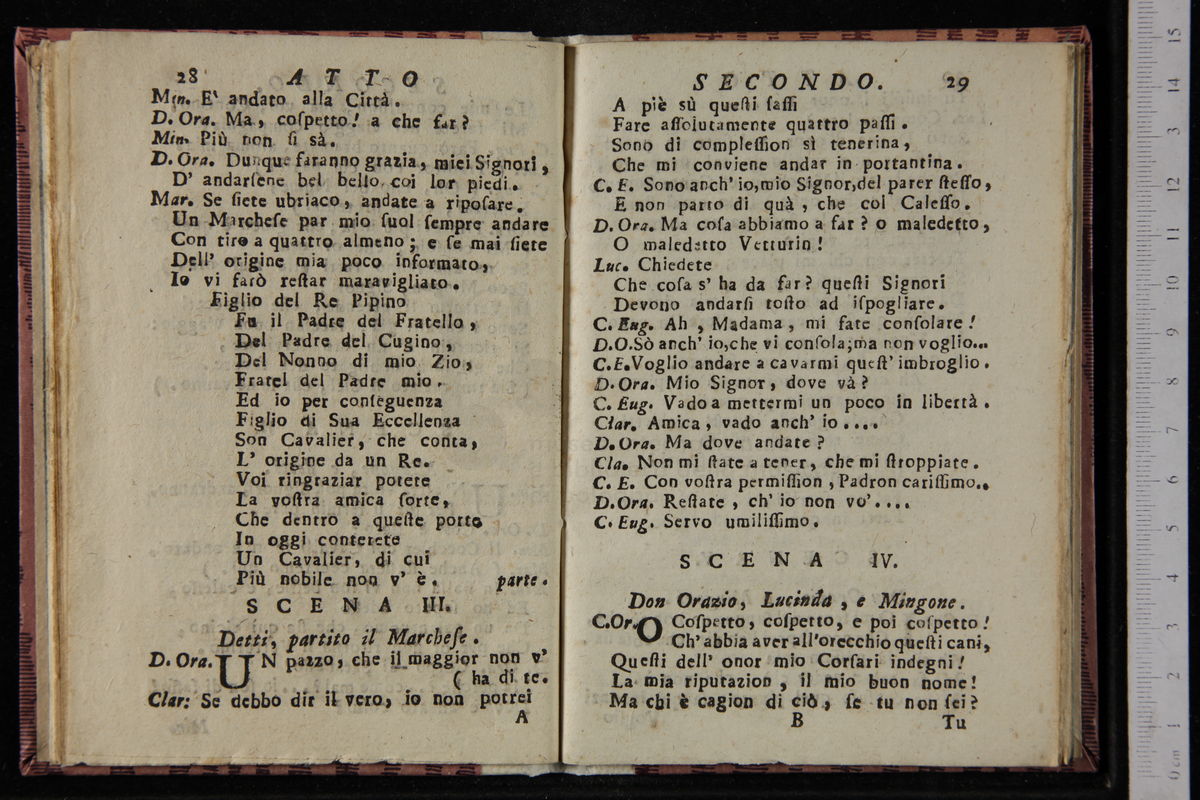 28 ATTO
Min. E' andato alla Città.
D. Ora. Ma, coſpetto! a che far?
Min. Più non ſi sà.
D. Ora. Dunque faranno grazia, miei Signori,
D' andarſene bel bello coi lor piedi.
Mar. Se ſiete ubriaco, andate a ripoſare.
Un Marcheſe par mio ſuol ſempre andare
Con tiro a quattro almeno; e ſe mai ſiete
Dell' origine mia poco informato,
Io vi farò reſtar maravigliato.
Figlio del Re Pipino
Fu il Padre del Fratello,
Del Padre del Cugino,
Del Nonno di mio Zio,
Fratel del Padre mio.
Ed io per conſeguenza
Figlio di Sua Eccellenza
Son Cavalier, che conta,
L' origine da un Re.
Voi ringraziar potete
La voſtra amica ſorte,
Che dentro a queſte porte
In oggi conterete
Un Cavalier, di cui
Più nobile non v' è. parte.
SCENA III.
Detti, partito il Marcheſe.
D. Ora. UN pazzo, che il maggior non v'
( ha di te.
Clar: Se debbo dir il vero, io non potrei
A
SECONDO. 29
A piè sù queſti ſaſſi
Fare aſſolutamente quattro paſſi.
Sono di compleſſion sì tenerina,
Che mi conviene andar in portantina.
C. E. Sono anch' io, mio Signor, del parer ſteſſo,
E non parto di quà, che col Caleſſo.
D. Ora. Ma coſa abbiamo a far? o maledetto,
O maledetto Vetturin!
Luc. Chiedete
Che coſa s' ha da far? queſti Signori
Devono andarſi toſto ad iſpogliare.
C. Eug. Ah, Madama, mi fate conſolare!
D.O. Sò anch' io, che vi conſola; ma non voglio...
C.E. Voglio andare a cavarmi queſt' imbroglio.
D. Ora. Mio Signor, dove và?
C. Eug. Vado a mettermi un poco in libertà.
Clar. Amica, vado anch' io....
D. Ora. Ma dove andate?
Cla. Non mi ſtate a tener, che mi ſtroppiate.
C. E. Con voſtra permiſſion, Padron cariſſimo..
D. Ora. Reſtate, ch' io non vo'....
C. Eug. Servo umiliſſimo.
SCENA IV.
Don Orazio, Lucinda, e Mingone.
C.Or. O Coſpetto, coſpetto, e poi coſpetto!
Ch' abbia aver all'orecchio queſti cani,
Queſti dell' onor mio Corſari indegni!
La mia riputazion, il mio buon nome!
Ma chi è cagion di ciò, ſe tu non ſei?
B Tu
0 cm 1 2 3 4 5 6 7 8 9 10 11 12 13 14 15